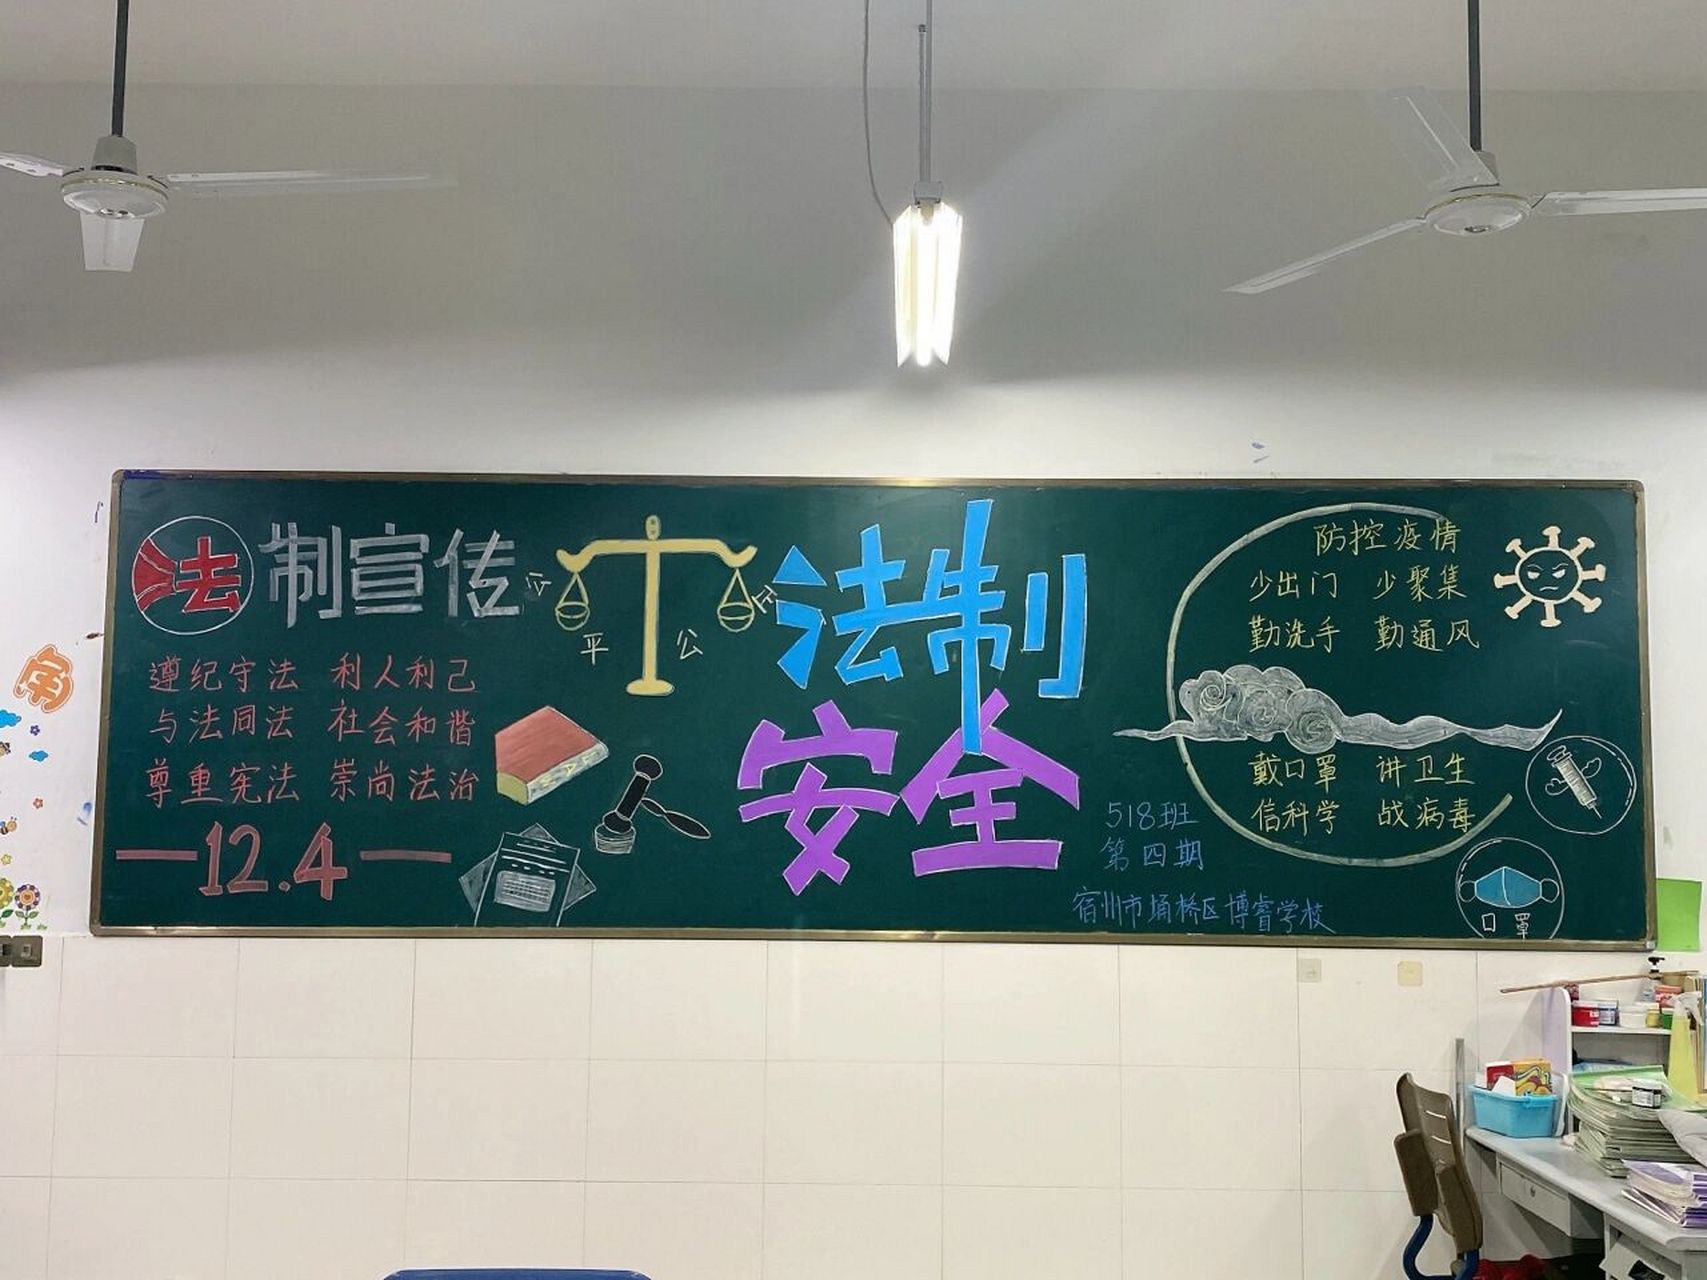 法制宣传
遵纪守法 利人利己
与法同法 社会和谐
尊重宪法 崇尚法治
12.4
公 正
平 公
法制
安全
518班
第四期
宿州市埇桥区博睿学校
防控疫情
少出门 少聚集
勤洗手 勤通风
戴口罩 讲卫生
信科学 战病毒
口罩
角